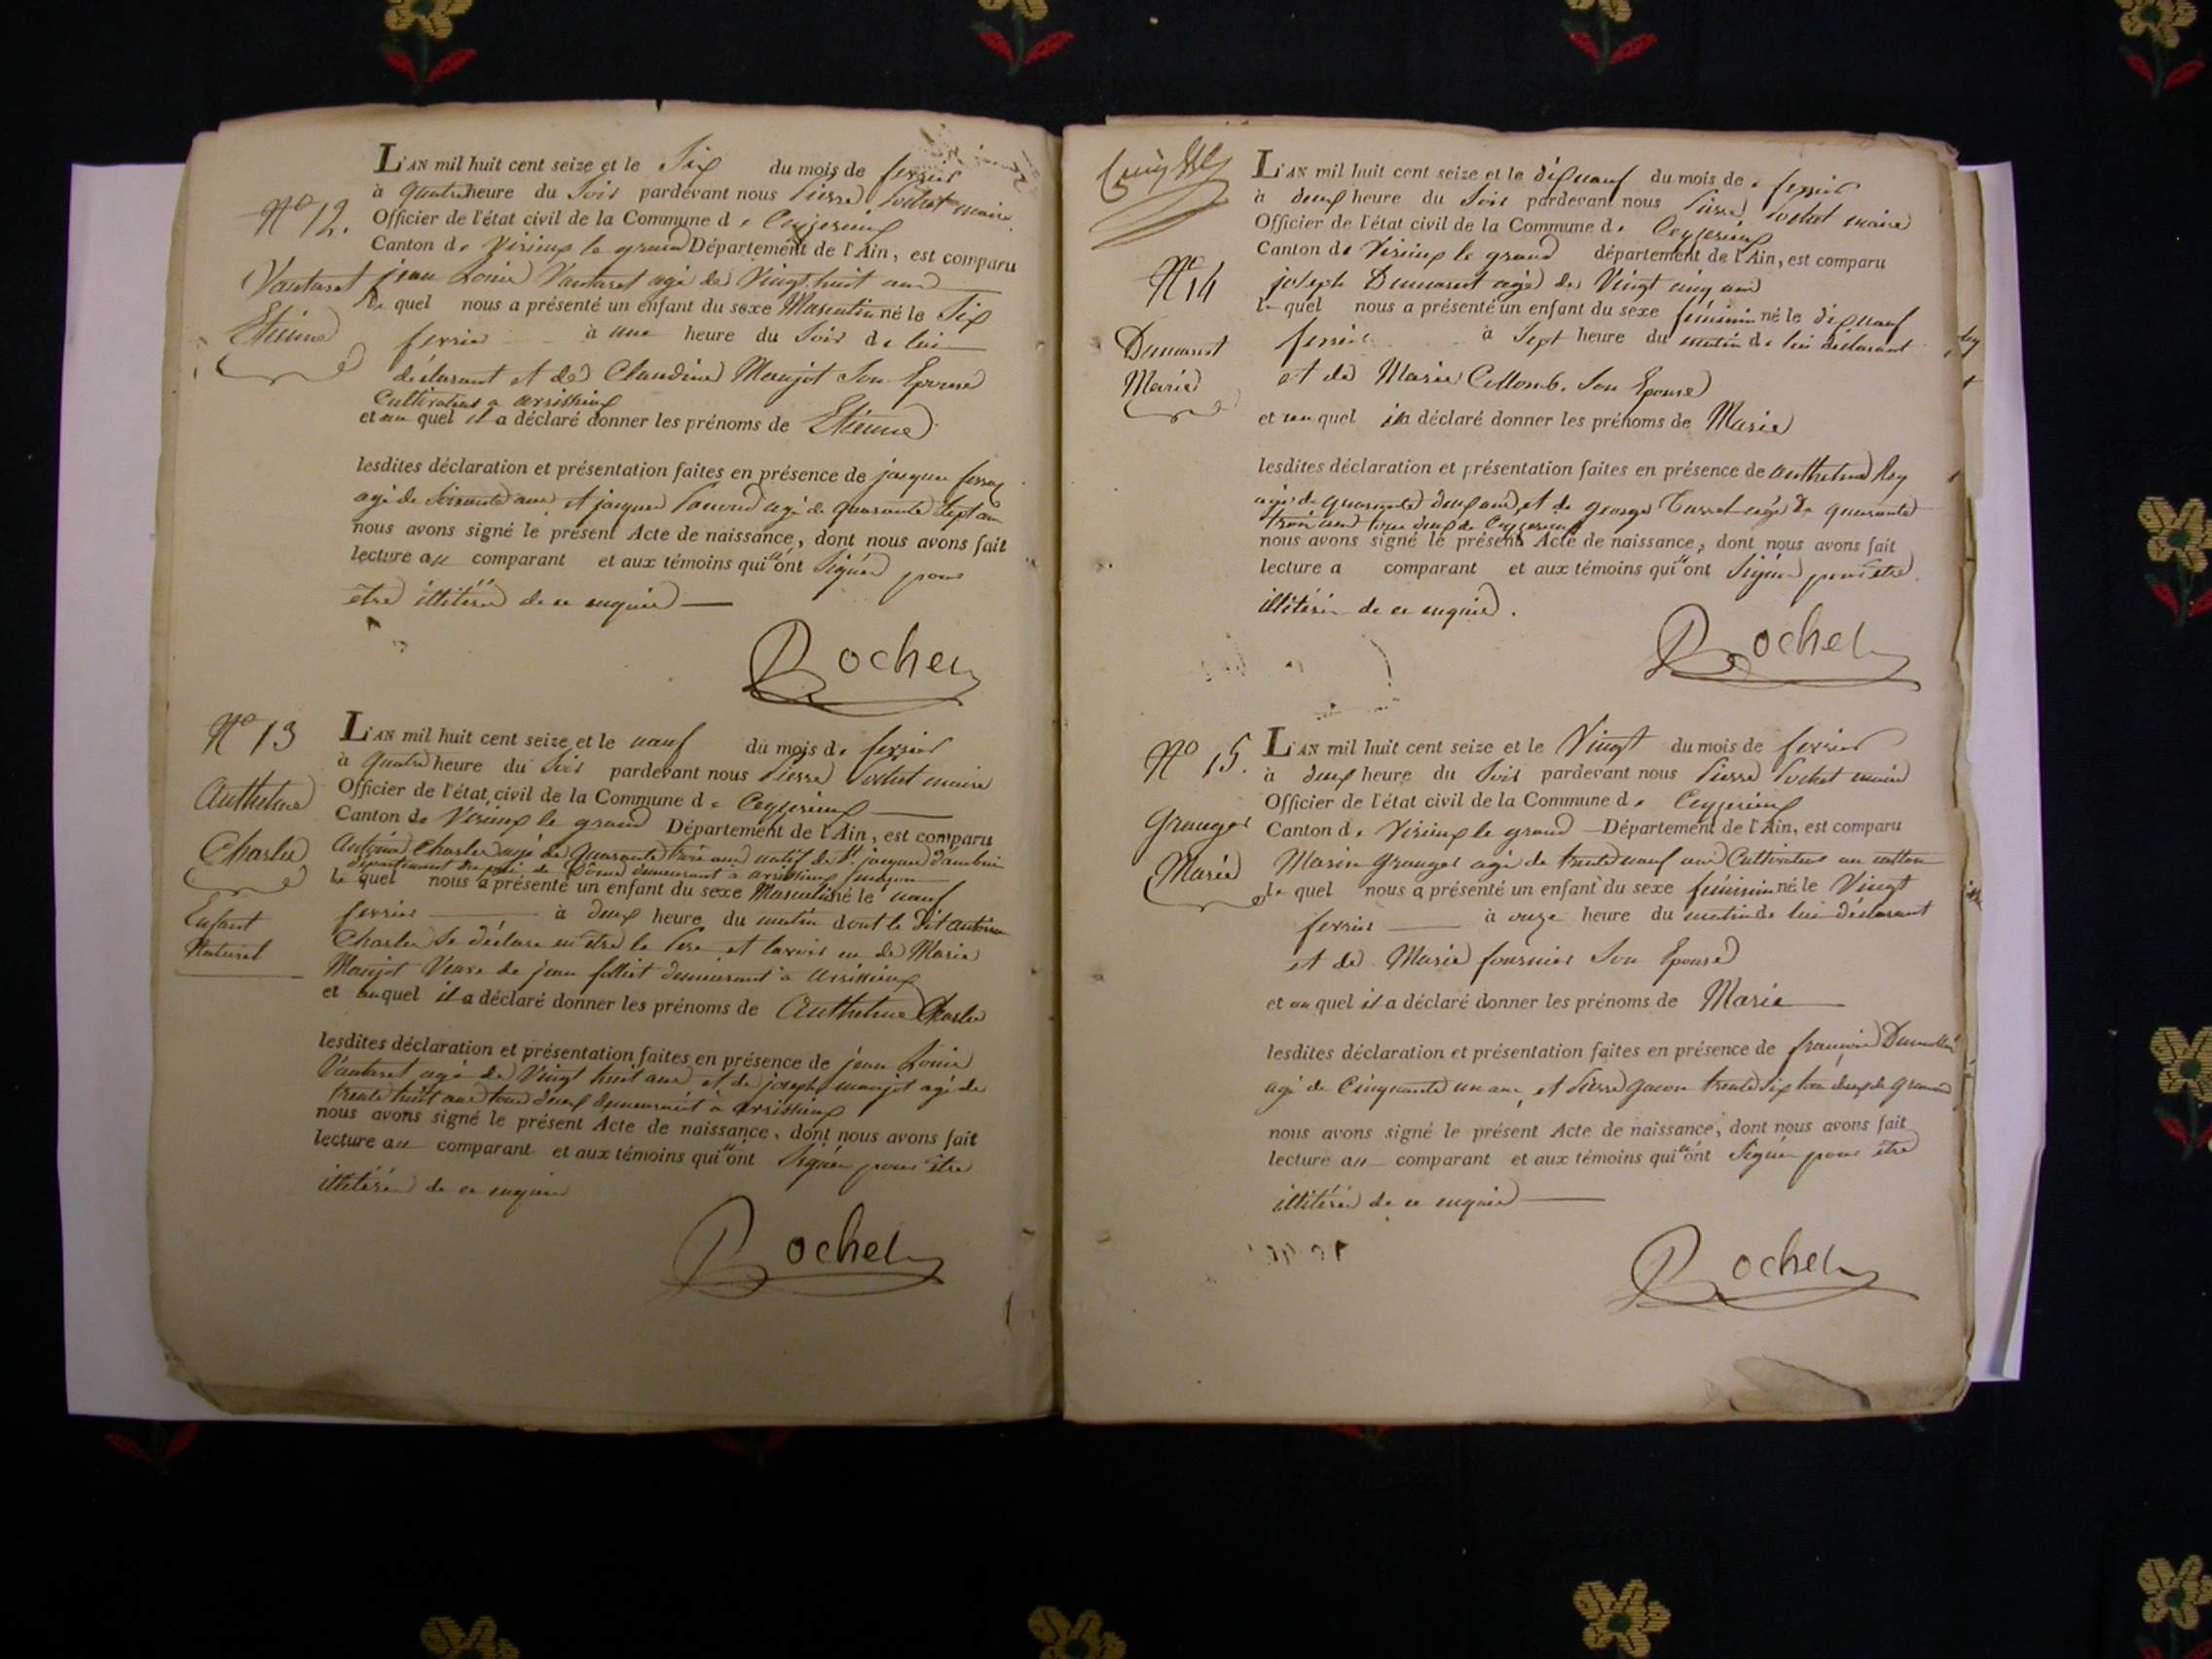 L'AN mil huit cent seize et le Six du mois de fevrier
à quatre heure du Soir pardevant nous Pierre Rochet maire
Officier de l'état civil de la Commune de Ceyzerieux
Canton de Virieux le grand Département de l'Ain, est comparu
jean Louis Vautaret agé de Vingt huit ans
le quel nous a présenté un enfant du sexe Masculin né le Six
fevrier à une heure du Soir de lui
déclarant et de Claudine Manjot Son Epouse
Cultivateur a arsissieux
et au quel il a déclaré donner les prénoms de Etienne
lesdites déclaration et présentation faites en présence de jacque
agé de Soixante ans et jacque agé de quarante Sept ans
nous avons signé le présent Acte de naissance, dont nous avons fait
lecture au comparant et aux témoins qui n'ont Signés pour
etre illitérés de ce enquis
Rochet
N° 12.
Vautaret
Etienne
N° 13
Anthelme
Charles
Enfant
Naturel
L'AN mil huit cent seize et le neuf du mois de fevrier
à quatre heure du Soir pardevant nous Pierre Rochet maire
Officier de l'état civil de la Commune de Ceyzerieux
Canton de Virieux le grand Département de l'Ain, est comparu
Antoine Charles agé de quarante trois ans natif de St. jacque d'ambur
département du puÿ de Dôme demeurant a arsissieux
le quel nous a présenté un enfant du sexe Masculin né le neuf
fevrier à deux heure du matin dont le dit antoine
Charles Se déclare en être le Pere et l'avoir eu de Marie
Manjot Veuve de jean folliet demeurant à arsissieux
et auquel il a déclaré donner les prénoms de Anthelme Charles
lesdites déclaration et présentation faites en présence de jean Louis
Vautaret agé de Vingt huit ans et de joseph manjot agé de
trente huit ans tous deux demeurant à arsissieux
nous avons signé le présent Acte de naissance, dont nous avons fait
lecture au comparant et aux témoins qui n'ont Signés pour être
illitérés de ce enquis
Rochet
L'AN mil huit cent seize et le dixneuf du mois de fevrier
à deux heure du Soir pardevant nous Pierre Rochet maire
Officier de l'état civil de la Commune de Ceyzerieux
Canton de Virieux le grand département de l'Ain, est comparu
joseph Dumarest agé de Vingt cinq ans
le quel nous a présenté un enfant du sexe féminin né le dixneuf
fevrier à Sept heure du matin de lui déclarant
et de Marie Collomb. Son Epouse
et au quel il a déclaré donner les prénoms de Marie
lesdites déclaration et présentation faites en présence de anthelme Rey
agé de quarante deux ans et de george agé de quarante
trois ans tous deux de Ceyzerieux
nous avons signé le présent Acte de naissance, dont nous avons fait
lecture a comparant et aux témoins qui n'ont Signés pour être
illitérés de ce enquis.
Rochet
N° 14
Dumarest
Marie
N° 15.
Granger
Marie
L'AN mil huit cent seize et le Vingt du mois de fevrier
à deux heure du Soir pardevant nous Pierre Rochet maire
Officier de l'état civil de la Commune de Ceyzerieux
Canton de Virieux le grand Département de l'Ain, est comparu
Marin Granger agé de trente neuf ans Cultivateur
le quel nous a présenté un enfant du sexe féminin né le Vingt
fevrier à onze heure du matin de lui déclarant
et de Marie fournier Son Epouse
et au quel il a déclaré donner les prénoms de Marie
lesdites déclaration et présentation faites en présence de françois
agé de Cinquante un ans, et Pierre gacon trente Six tous deux de
nous avons signé le présent Acte de naissance, dont nous avons fait
lecture au comparant et aux témoins qui n'ont Signés pour être
illitérés de ce enquis
Rochet